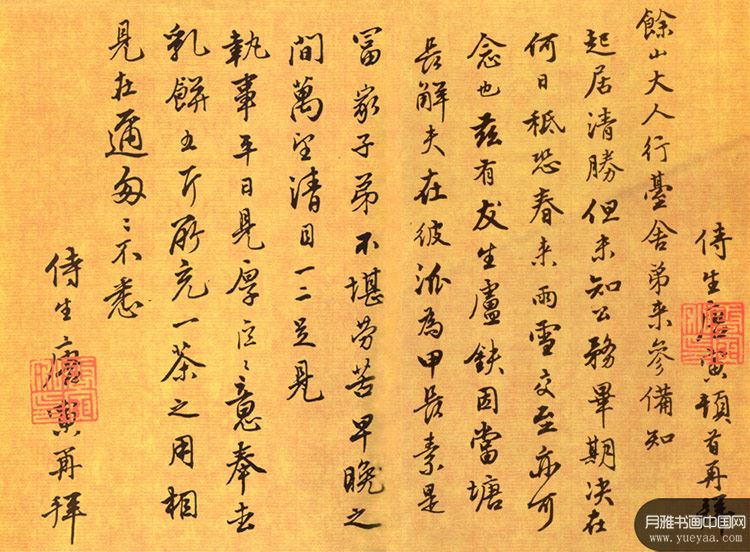 侍生唐寅頓首再拜
餘山大人行臺舍弟来參備知
起居清勝但未知公務畢期决在
何日秪恐春来雨雪交至亦可
念也茲有友生盧鉄因當塘
長解夫在彼派為甲長素是
冨家子弟不堪勞苦早晚之
間萬望清目一二足見
執事平日見厚意奉去
乳餅五斤所充一茶之用相
見在邇匆〻不悉
侍生唐寅再拜
月雅书画中国网
www.yueyaa.com